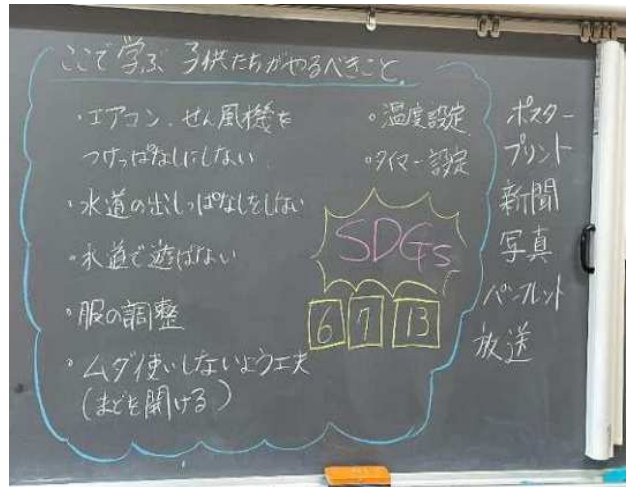 ここで学ぶ子供たちがやるべきこと
・エアコン、せん風機を
つけっぱなしにしない
・水道の出しっぱなしをしない
・水道で遊ばない
・服の調整
・ムダ使いしないよう工夫
(まどを開ける)
・温度設定
・タイマー設定
SDGs
6 7 13
ポスター
プリント
新聞
写真
パンフレット
放送